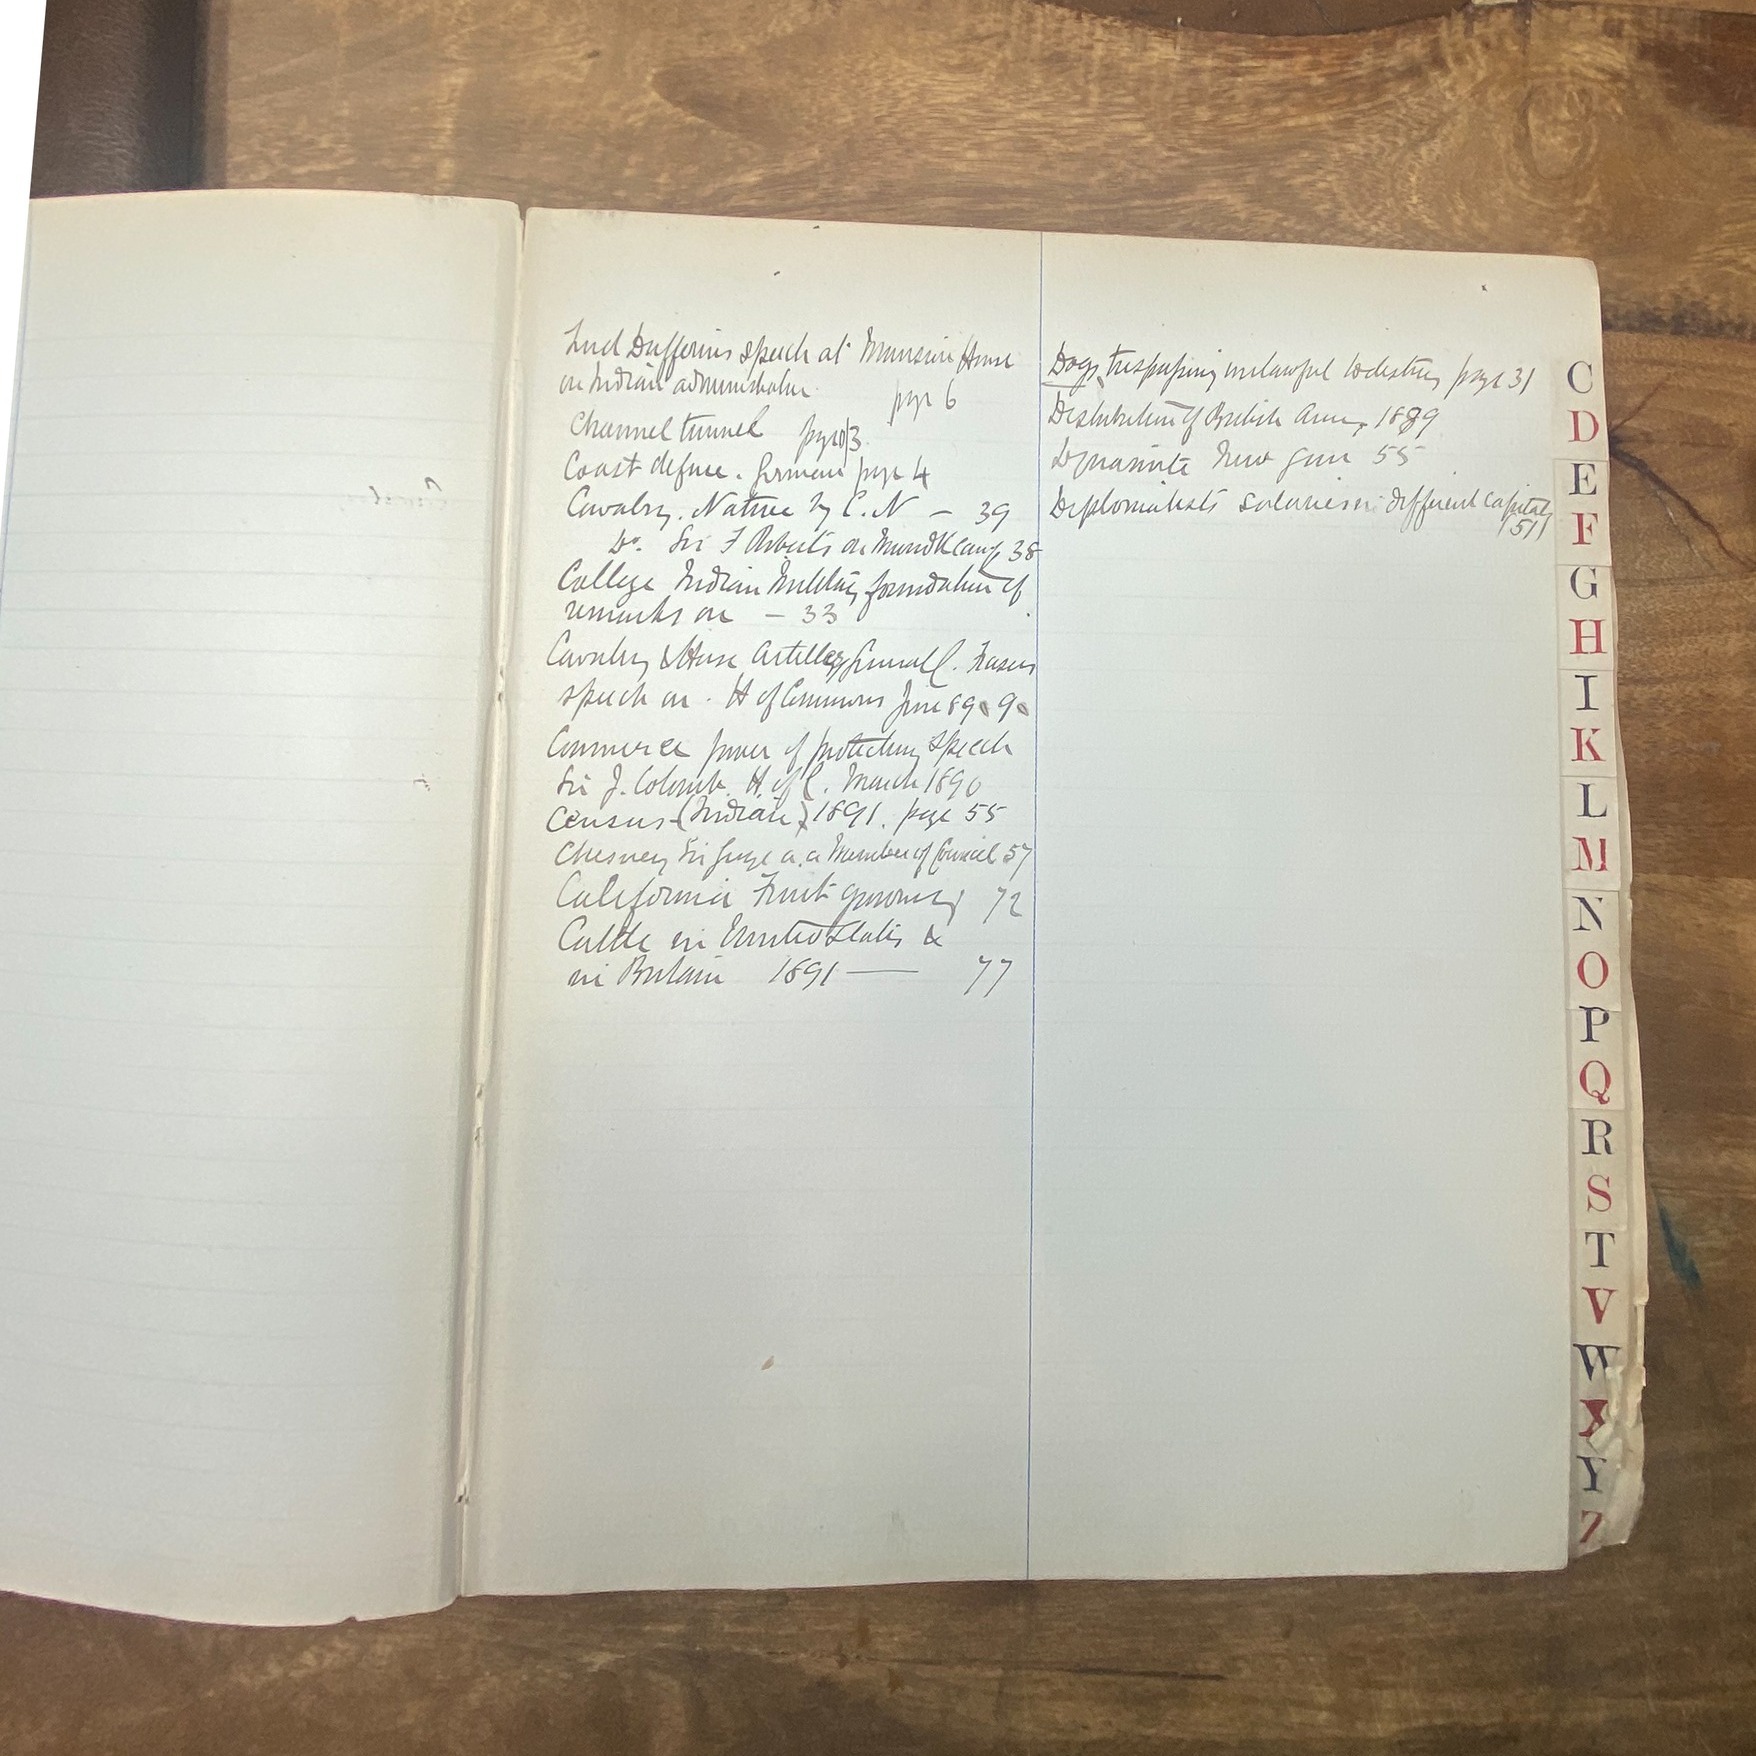 Lord Dufferins speech at Mansion House
on Indian administration
page 6
Channel tunnel page 3
Coast defence. German page 4
Cavalry. Native by C. N — 39
Do. Sir F Roberts on Muridki Camp 38
College Indian Military foundation of
remarks on — 33
Cavalry & Horse Artillery General C. Frasers
speech on . H of Commons June 89. 9.
Commerce power of protecting speech
Sir J. Colomb. H. of C. March 1890
Census (Indian) 1891. page 55
Chesney Sir George a. a Member of Council 57
California Fruit growing 72
Cattle in United States &
in Britain 1891 — 77
Dogs, trespassing unlawful to destroy page 31
Distribution of British Army 1889
Dynamite New Gun 55
Diplomatists salaries in different Capitals
51
C
D
E
F
G
H
I
K
L
M
N
O
P
Q
R
S
T
V
W
X
Y
Z